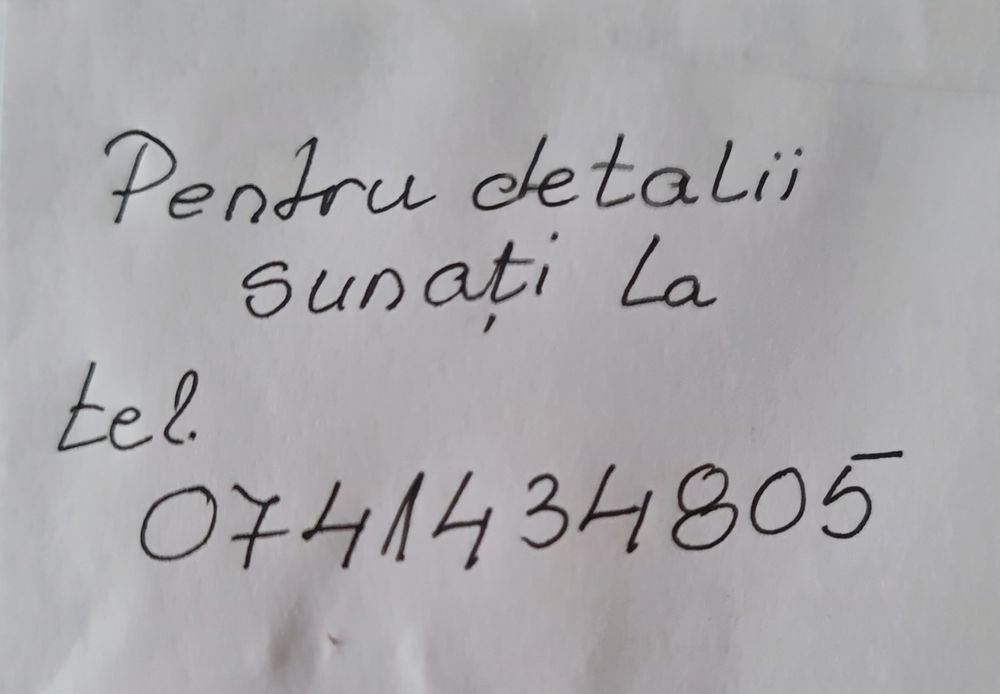 Pentru detalii
sunați la
tel.
0741434805